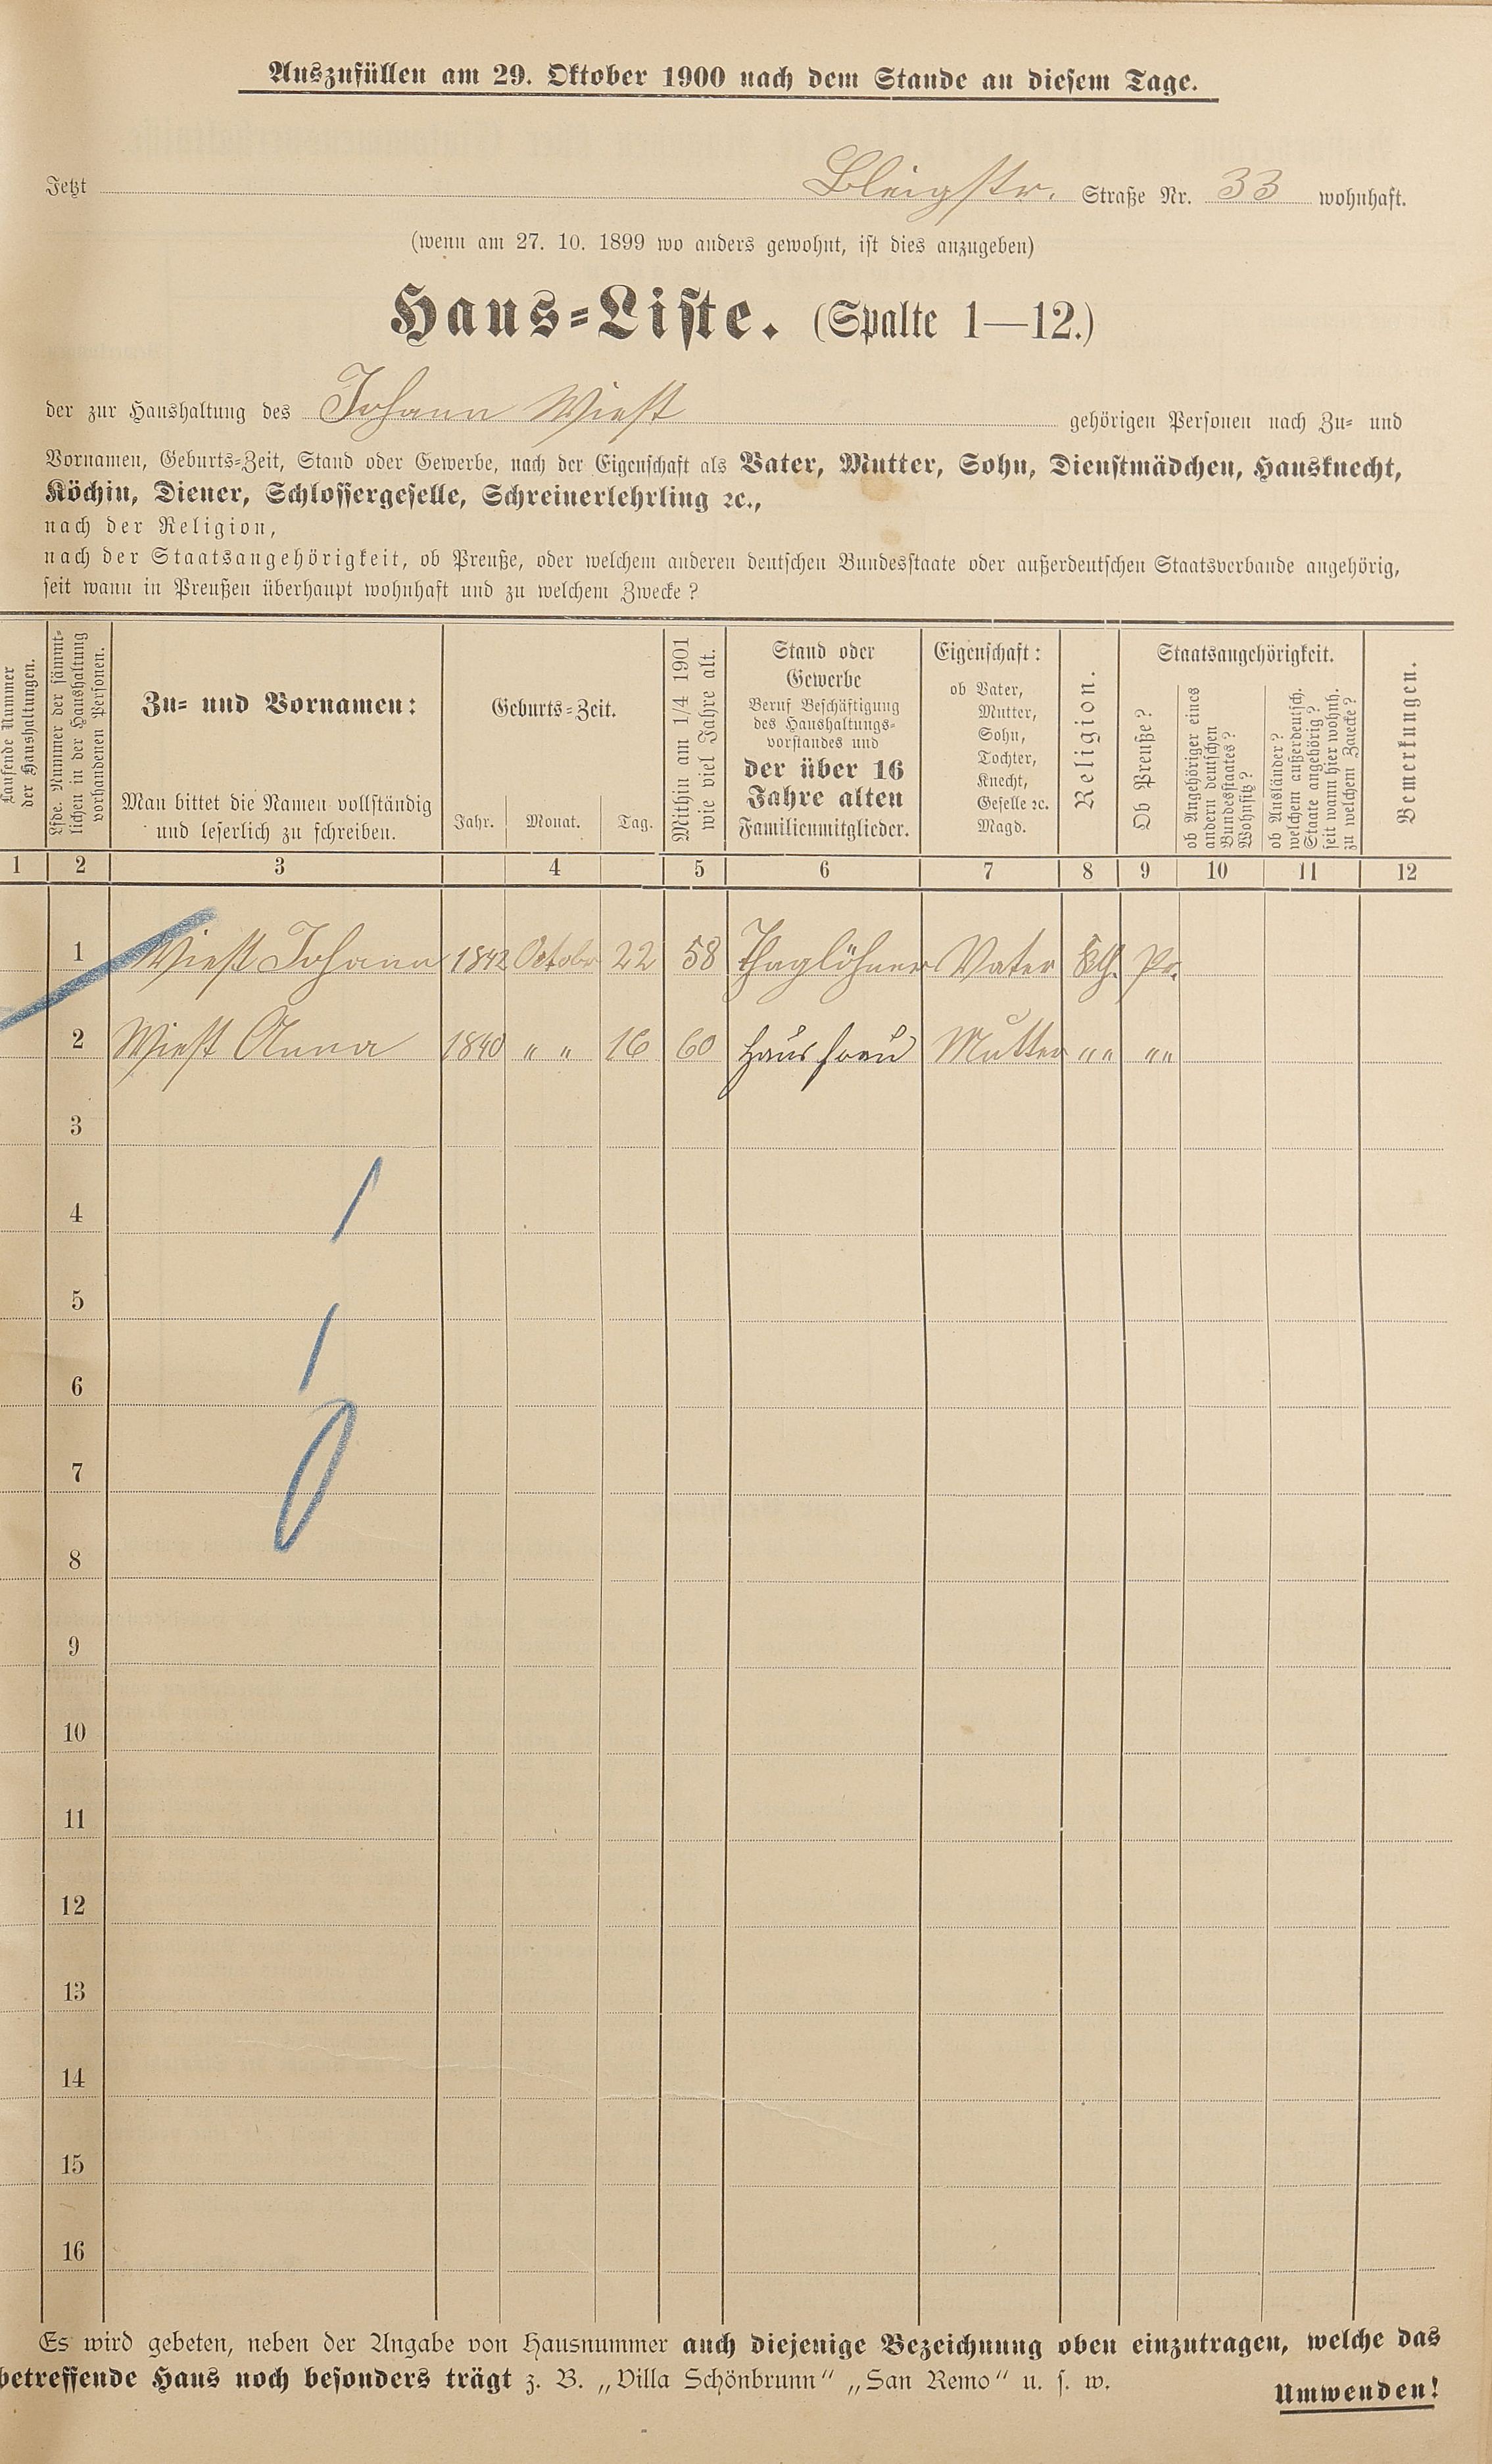 Auszufüllen am 29. Oktober 1900 nach dem Stande an diesem Tage.
Jetzt Bleigstr. Straße Nr. 33 wohnhaft.
(wenn am 27. 10. 1899 wo anders gewohnt, ist dies anzugeben)
Haus-Liste. (Spalte 1—12.)
der zur Haushaltung des Johann Wiest gehörigen Personen nach Zu- und
Vornamen, Geburts-Zeit, Stand oder Gewerbe, nach der Eigenschaft als Vater, Mutter, Sohn, Dienstmädchen, Hausknecht,
Köchin, Diener, Schlossergeselle, Schreinerlehrling ꝛc.,
nach der Religion,
nach der Staatsangehörigkeit, ob Preuße, oder welchem anderen deutschen Bundesstaate oder außerdeutschen Staatsverbande angehörig,
seit wann in Preußen überhaupt wohnhaft und zu welchem Zwecke?
Laufende Nummer
der Haushaltungen.
Lfde. Nummer der sämmt-
lichen in der Haushaltung
vorhandenen Personen.
Zu- und Vornamen:
Man bittet die Namen vollständig
und leserlich zu schreiben.
Geburts-Zeit.
Jahr. Monat. Tag.
Mithin am 1/4 1901
wie viel Jahre alt.
Stand oder
Gewerbe
Beruf Beschäftigung
des Haushaltungs-
vorstandes und
der über 16
Jahre alten
Familienmitglieder.
Eigenschaft:
ob Vater,
Mutter,
Sohn,
Tochter,
Knecht,
Geselle ꝛc.
Magd.
Religion.
Staatsangehörigkeit.
Ob Preuße?
ob Angehöriger eines
andern deutschen
Bundesstaates?
Wohnsitz?
ob Ausländer?
welchem außerdeutsch.
Staate angehörig?
seit wann hier wohnh.
zu welchem Zwecke?
Bemerkungen.
1 2 3 4 5 6 7 8 9 10 11 12
1 Wiest Johann 1842 Octobr 22 58 Thaglöhner Vater Pr.
2 Wiest Anna 1840 " " 16 60 Hausfrau Mutter "" ""
3
4
5
6
7
8
9
10
11
12
13
14
15
16
Es wird gebeten, neben der Angabe von Hausnummer auch diejenige Bezeichnung oben einzutragen, welche das
betreffende Haus noch besonders trägt z. B. „Villa Schönbrunn“ „San Remo“ u. s. w.
Umwenden!